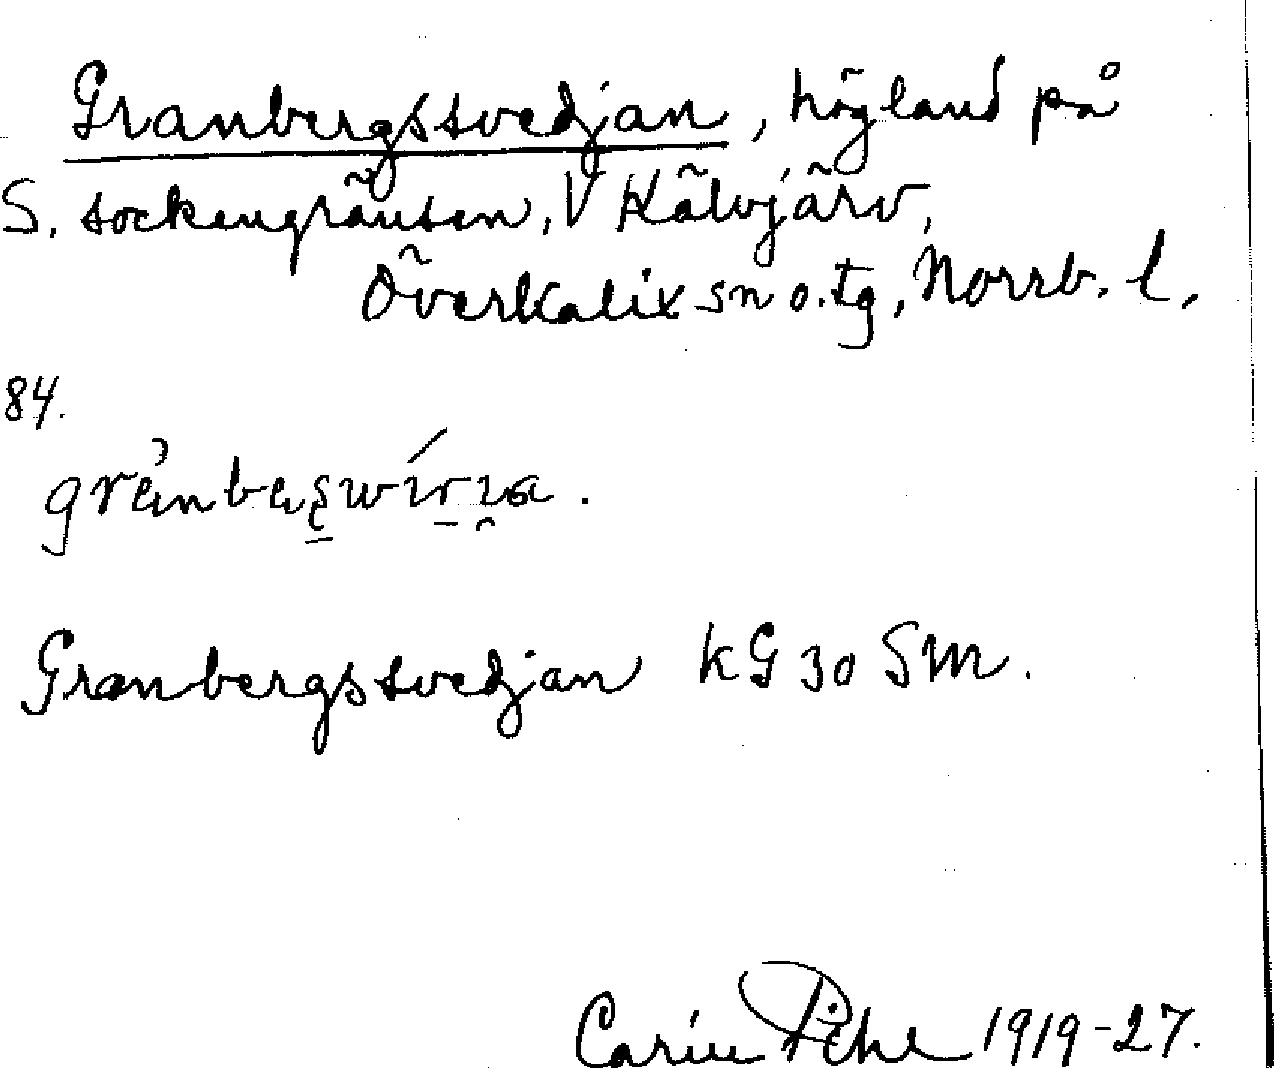 Granbergssvedjan, högland på
S. sockengränsen, V Kälvjärv,
Överkalix sn o. tg, Norrb. l.
84.
Granbergssvedjan KG 30 SM.
Carin Pihl 1919-27.